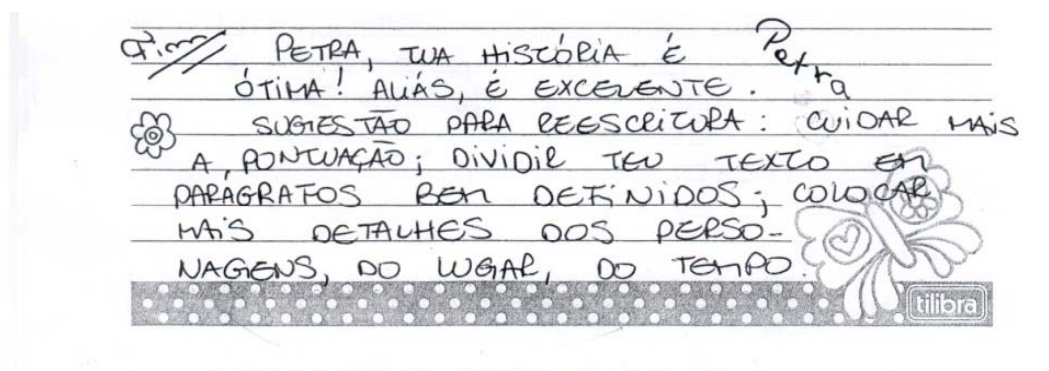 Fim PETRA, TUA HISTÓRIA É Petra
ÓTIMA! ALIÁS, É EXCELENTE.
SUGESTÃO PARA REESCRITURA: CUIDAR MAIS
A PONTUAÇÃO; DIVIDIR TEU TEXTO EM
PARAGRAFOS BEM DEFINIDOS; COLOCAR
MAIS DETALHES DOS PERSO-
NAGENS, DO LUGAR, DO TEMPO.
tilibra